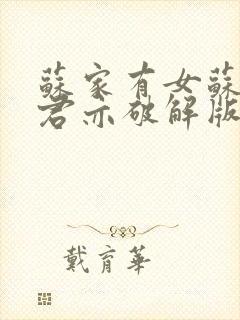 蘇家有女蘇
君亦破解版
戴育華